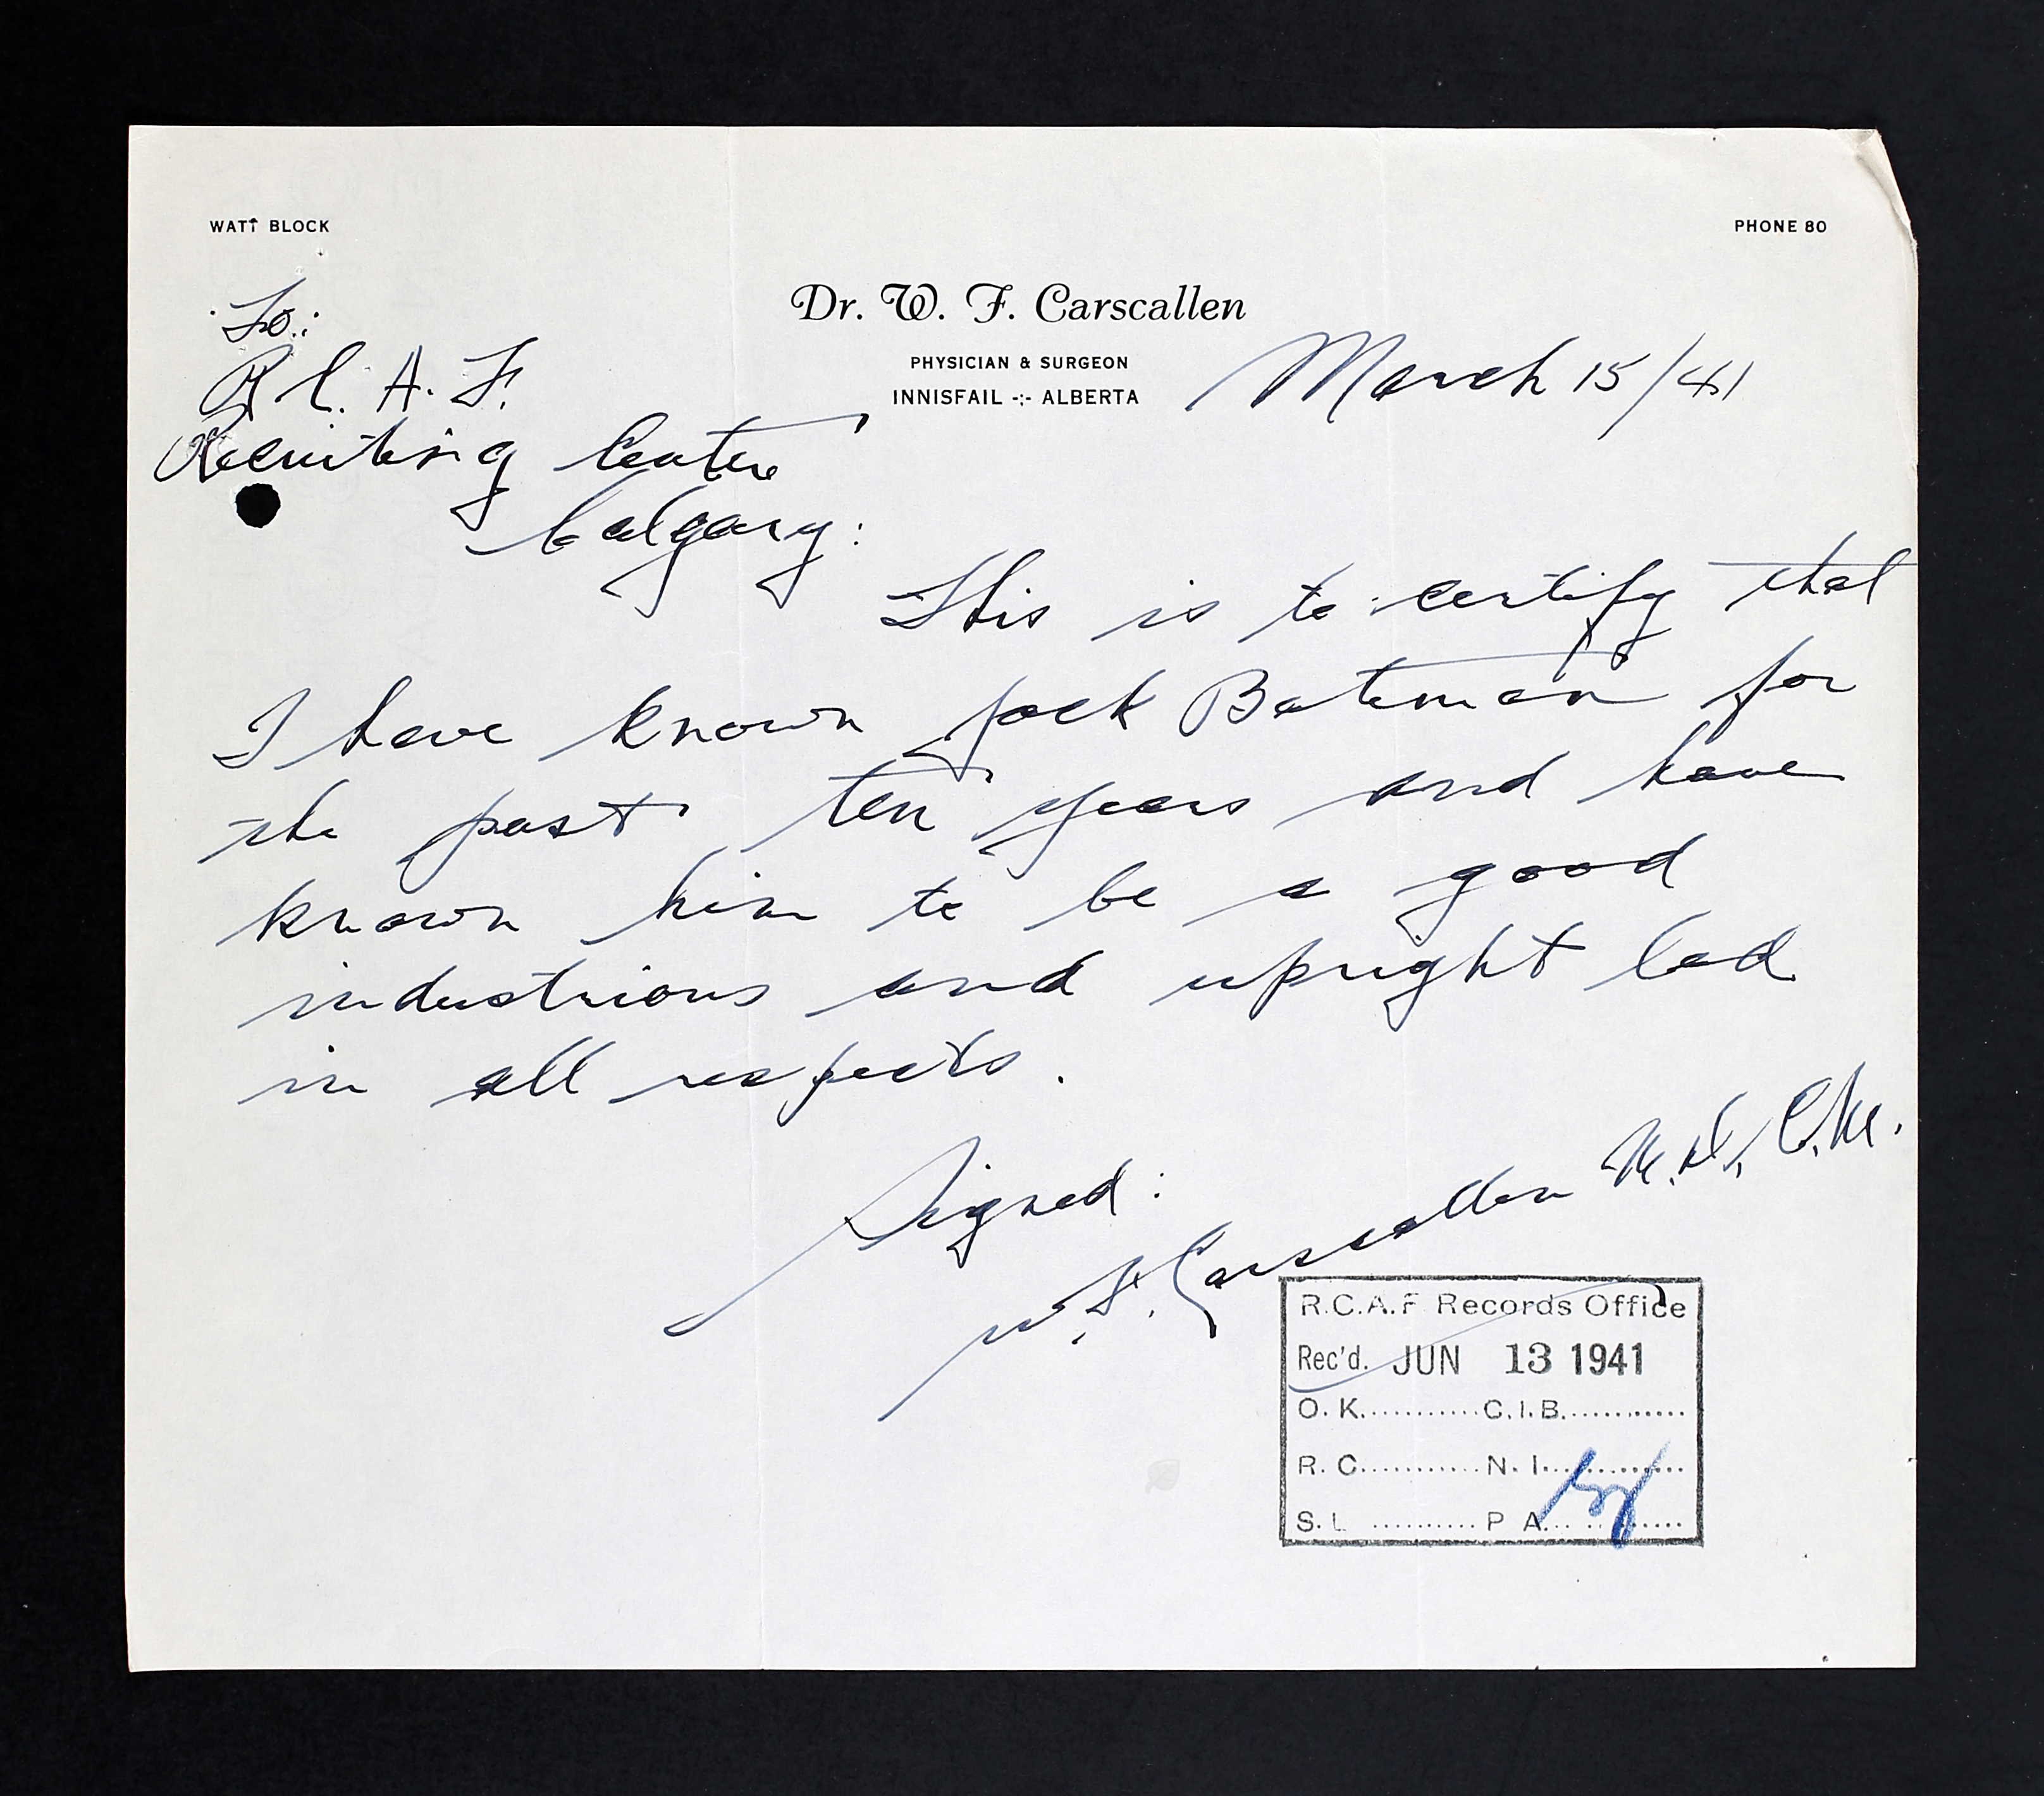 WATT BLOCK
PHONE 80
Dr. W. F. Carscallen
PHYSICIAN & SURGEON
INNISFAIL -:- ALBERTA
March 15/41
To:
R C. A. F.
Recruiting Centre
Calgary:
This is to certify that
I have known Jack Bateman for
the past ten years and have
known him to be a good
industrious and upright lad
in all respects.
Signed:
W. F. Carscallen M.D., C.M.
R.C.A.F Records Office
Rec'd. JUN 13 1941
O. K............C.I.B............
R. C............N. I............
S. L ...........P A............